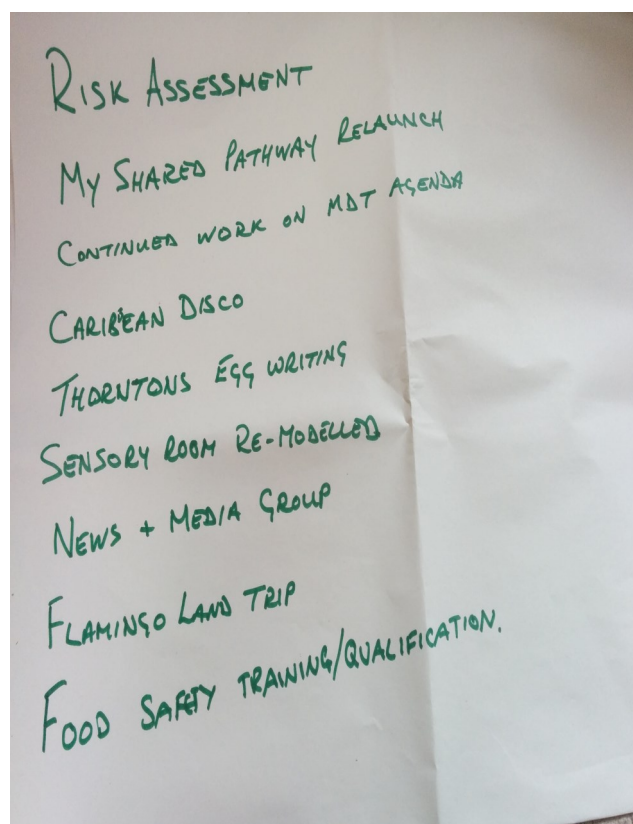 RISK ASSESSMENT
MY SHARED PATHWAY RELAUNCH
CONTINUED WORK ON MDT AGENDA
CARIBEAN DISCO
THORNTONS EGG WRITING
SENSORY ROOM RE-MODELLED
NEWS + MEDIA GROUP
FLAMINGO LAND TRIP
FOOD SAFETY TRAINING/QUALIFICATION.